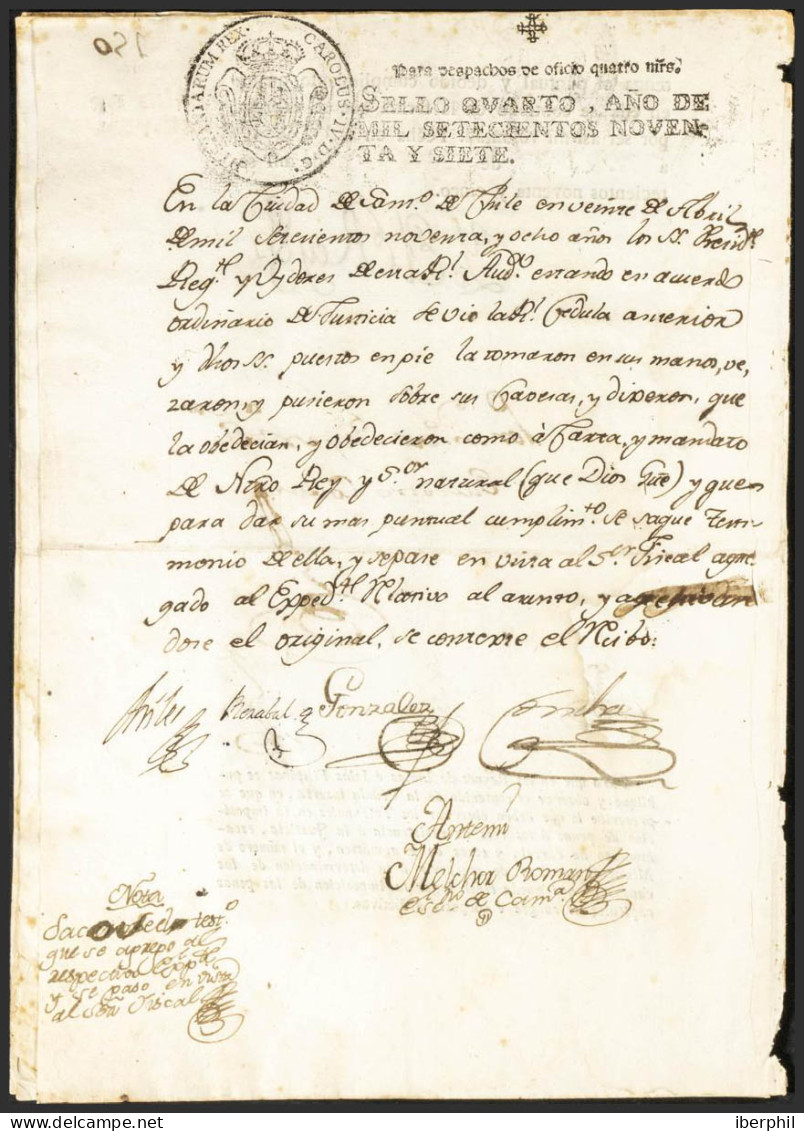 150
HISPANIARUM REX. CAROLUS. IV. D. G.
Para despachos de oficio quatro mrs.
SELLO QVARTO, AÑO DE
MIL SETECIENTOS NOVEN-
TA Y SIETE.
En la Ciudad de Santo. de Chile en veinte de Abril
de mil setecientos noventa, y ocho años los SS. Presidte.
Regte. y Oydores de esta Rl. Auda. estando en acuerdo
ordinario de Justicia se vio la Rl. Cedula anterior
y dhos SS. puestos en pie la tomaron en sus manos, ve-
zaron, y pusieron sobre sus Cavesas, y dixeron, que
la obedecian, y obedecieron como à Carta, y mandato
de Ntro Rey y Sor. natural (que Dios Gue) y que
para dar su mas puntual cumplimto. se saque testi-
monio de ella, y se pase en vista al Sor. Fiscal agre-
gado al Expedte. relativo al asunto, y
dose el original, se conteste el recibo:
Aviles Rezabal Gonzalez Concha
Antemi
Melchor Roman
Esno. de Cama.
Nota
Sacose testo.
que se agrego al
respectivo Expte.
y se paso en vista
al Señor Fiscal
iberphil